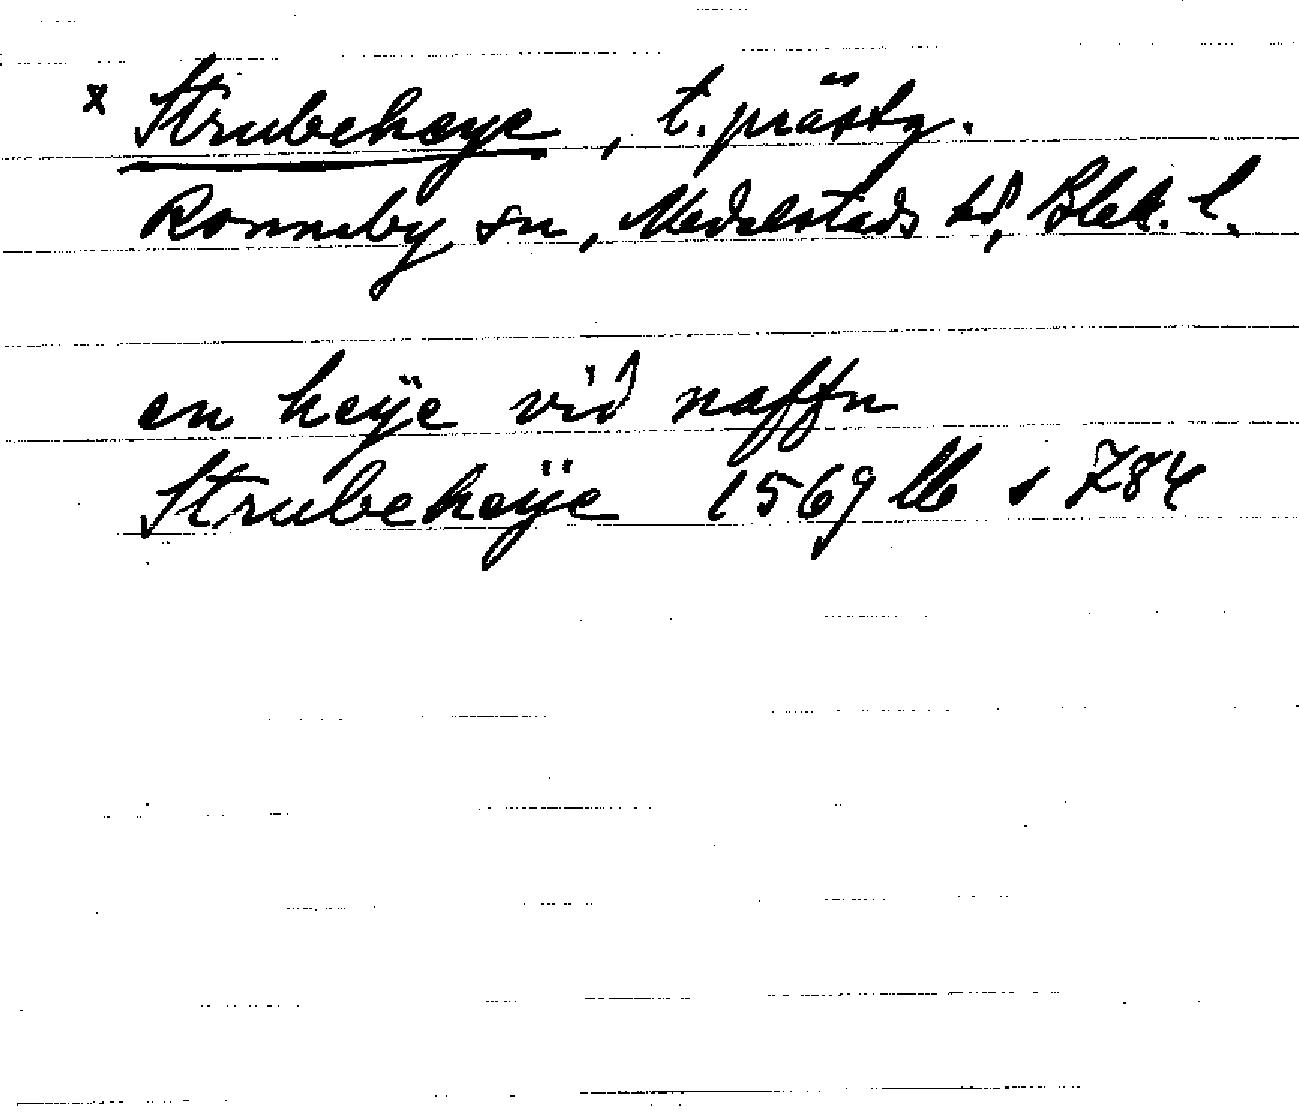 x Strubehæye, t. prästg.
Ronneby sn, Medelstads hd, Blek. l.
en heÿe vid naffn
Strubeheÿe 1569 lb s 784